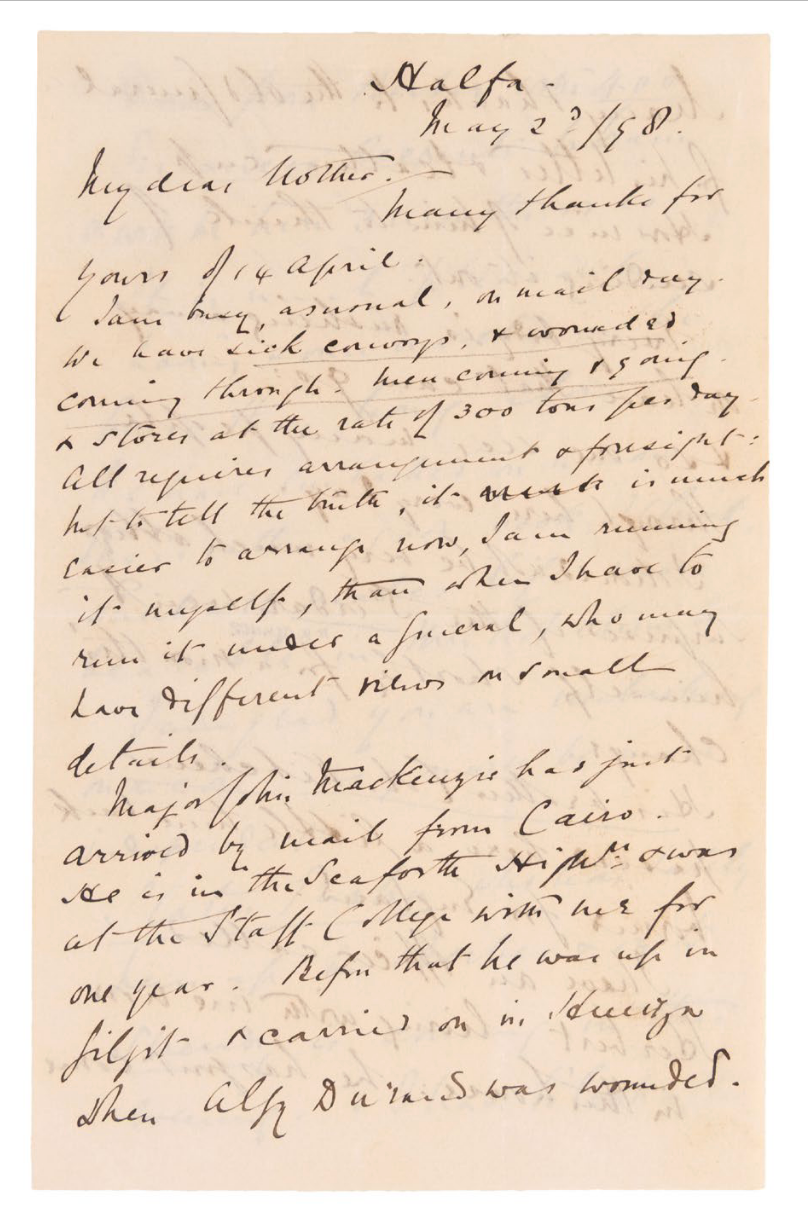 Halfa -
May 2d/98.
My dear Mother. -
Many thanks for
yours of 14 April.
I am busy, as usual, on mail day.
We have sick convoys, & wounded
coming through. Men coming & going
& stores at the rate of 300 tons per day.
All requires arrangement & foresight:
but to tell the truth, it is much
easier to arrange now, I am running
it myself, than when I have to
run it under a General, who may
have different views on small
details.
Major John Mackenzie has just
arrived by mail from Cairo.
He is in the Seaforth Highrs & was
at the Staff College with me for
one year. Before that he was up in
Gilgit & carried on in Hunza
when Algy Durand was wounded.